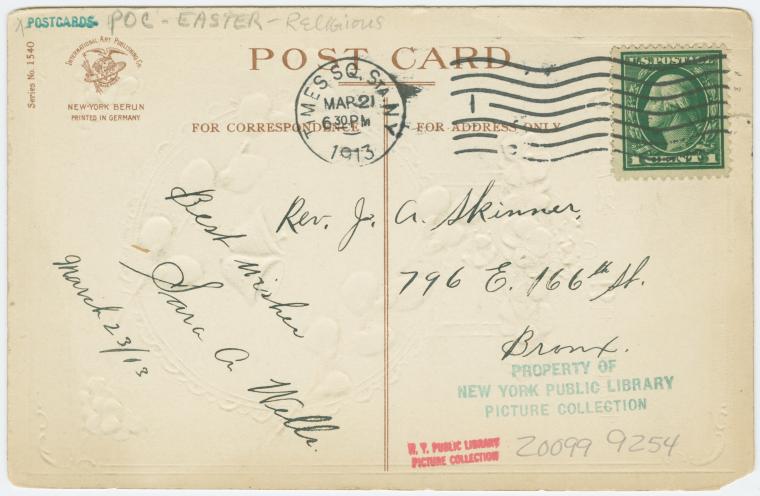 POSTCARDS. POC - EASTER - Religious
Series No. 1540
INTERNATIONAL ART PUBLISHING CO.
NEW-YORK BERLIN
PRINTED IN GERMANY
POST CARD
FOR CORRESPONDENCE
FOR ADDRESS ONLY
TIMES SQ. STA. N.Y.
MAR 21
6 30 PM
1913
1
U.S. POSTAGE
1 CENT 1
Rev. J. A. Skinner,
796 E. 166th St.
Bronx.
Best wishes
Sara A. Wells.
March 23/13
PROPERTY OF
NEW YORK PUBLIC LIBRARY
PICTURE COLLECTION
N. Y. PUBLIC LIBRARY
PICTURE COLLECTION
20099 9254